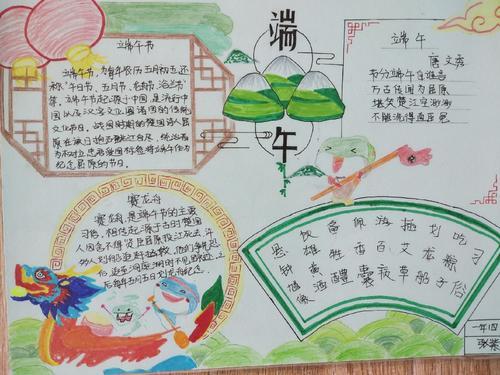 端午节
端午节，为每年农历五月初五，还
称"午日节、五月节、
等，端午节起源于中国，是流行中
国以及汉字文化圈诸国的传统
文化节日，战国时期的楚国诗人屈
原在该日抱石跳汨罗江自尽，统治者
为树立忠君爱国标签将端午作为
纪念屈原的节日。
端午
端午
唐 文秀
节分端午自谁言
万古传闻为屈原
堪笑楚江空渺渺
不能洗得直臣冤
赛龙舟
赛龙舟，是端午节的主要
习俗。相传起源于古时楚国
人因舍不得贤臣屈原投江死去，许
多人划船追赶拯救。他们争先恐
后，追至洞庭湖时不见踪迹，之
后每年五月五日划龙舟纪念。
悬钟馗像
饮雄黄酒
备牲醴
佩香囊
游百夜
插艾草
划龙船
吃粽子
习俗
一年四
张紫